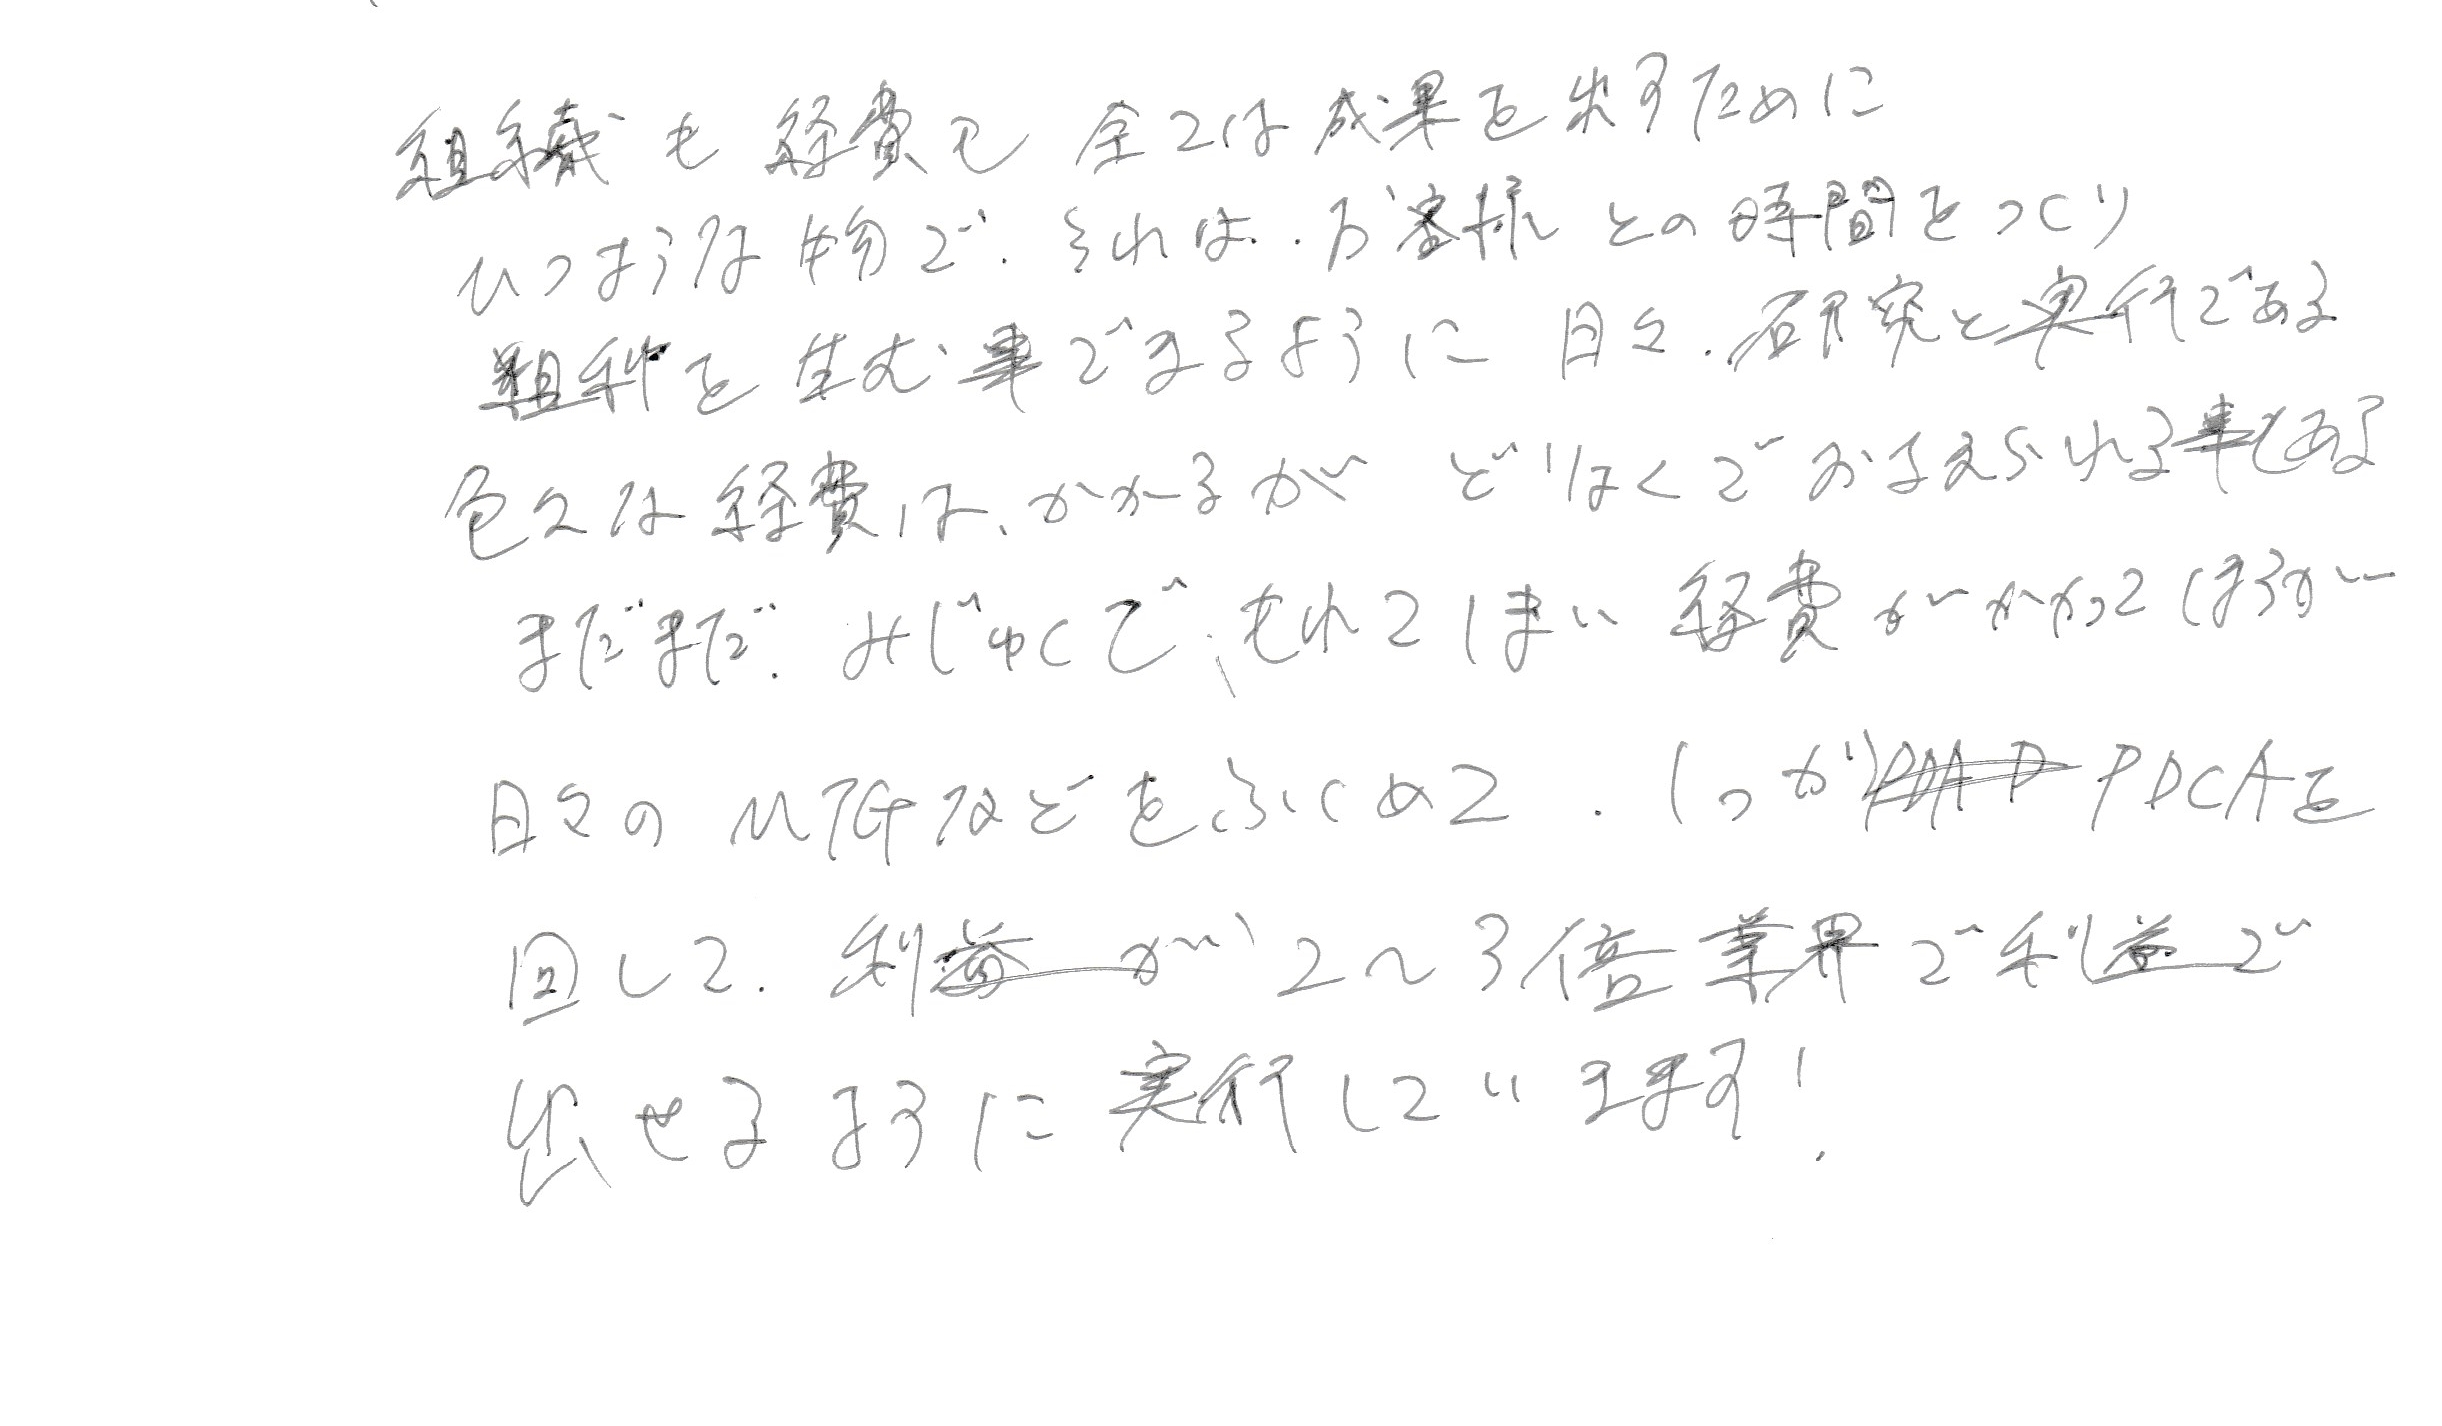 組織も経費も全ては成果を出すために
ひつような物で、それは、お客様との時間をつくり
粗利を生む事できるように日々、研究と実行である
色々な経費は、かかるが どりょくでおさえられる事もある
まだまだ、みじゅくで、もれてしまい経費がかかってしまうが
日々のMTGなどをふくめて、しっかり PDCAを
回して、利益が2〜3倍業界で利益で
出せるように実行しています!